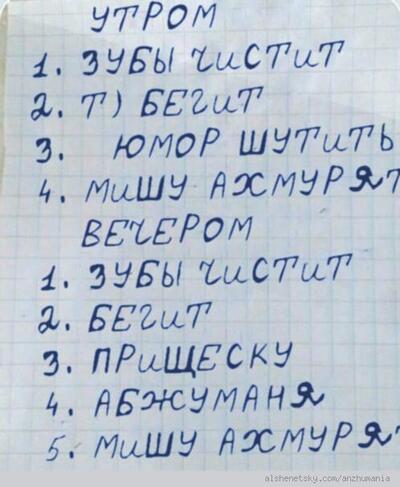 УТРОМ
1. ЗУБЫ ЧИСТИТ
2. Т) БЕГИТ
3. ЮМОР ШУТИТЬ
4. МИШУ АХМУРЯТ
ВЕЧЕРОМ
1. ЗУБЫ ЧИСТИТ
2. БЕГИТ
3. ПРИЩЕСКУ
4. АБЖУМАНЯ
5. МИШУ АХМУРЯТ
alshenetsky.com/anzhumania